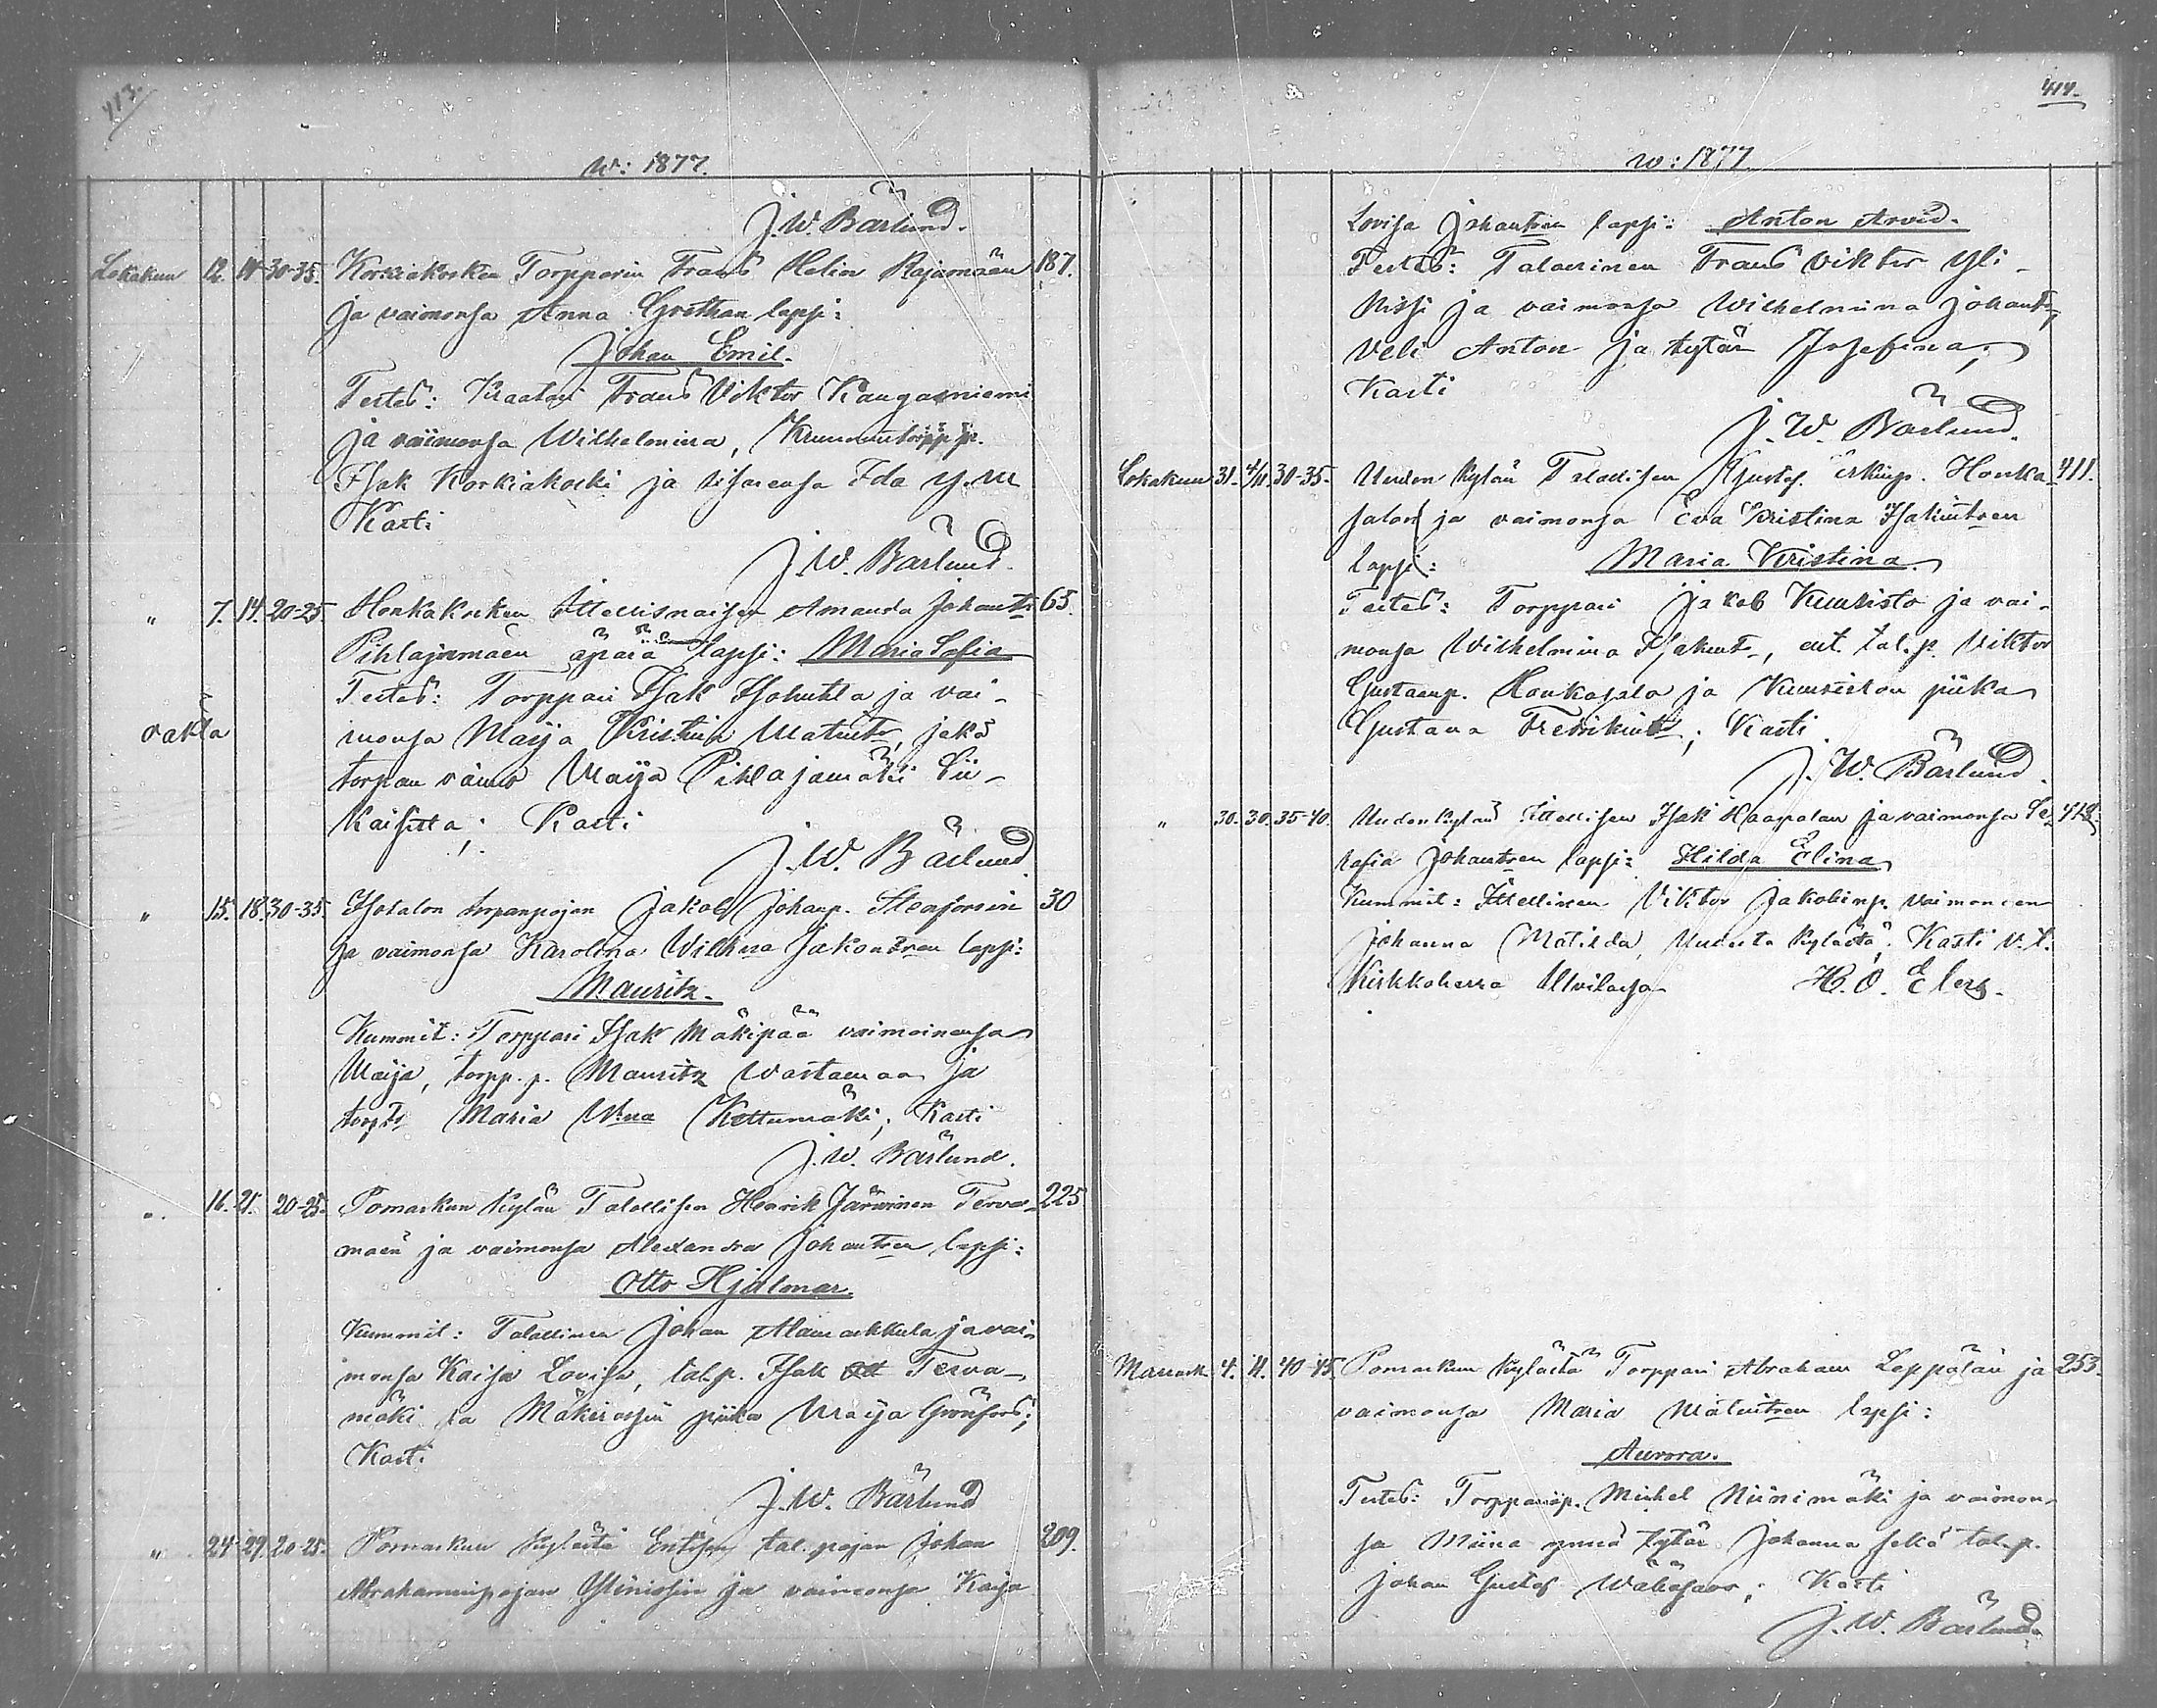 413.
w: 1877.
J. W. Bärlund.
Lokakuu 12. 14. 30-35. Korkiakosken Torpparin Frans Helin Rajamäen 187.
ja vaimonsa Anna Grethan lapsi:
Johan Emil.
Testes: Kraatari Frans Viktor Kangasniemi
ja vaimonsa Wilhelmina,
Isak Korkiakoski ja sisarensa Ida y. m
Kasti
J. W. Bärlund.
" 7. 14. 20-25 Honkakosken Itsellisnaisen Amanda Johants 65.
Pihlajamäen äpärä lapsi: Maria Sofia
Testes: Torppari Isak Isohuhta ja vai-
rokla
monsa Maija Kristiina Matints, jeka
torpan vaimo Maija Pihlajamäki Lii-
kaisista; Kasti
J. W. Bärlund.
" 15. 18. 30-35. Isosalon torpanpojan Jakob Johanp. Stenforsin 30
ja vaimonsa Karolina Wilhna Jakobntren lapsi:
Mauritz.
Kummit: Torppari Isak Mäkipää vaimoinensa
Maija, torpp. p. Mauritz Wastamaa ja
torpts Maria Wna Kettumäki; Kasti
J. W. Bärlund.
" 16. 21. 20-25. Pomarkun kylän Talollisen Henrik Järwinen Terva- 225
mäen ja vaimonsa Alexandra Johantren lapsi:
Otto Hjalmar.
Kummit: Talollinen Johan Alamarkkula ja vai-
monsa Kaisa Lovisa, tal.p. Isak Terva-
mäki ja piika Maija Grönfors;
Kasti
J. W. Bärlund
" 24. 29. 20-25. Pomarkun kylästä Entisen tal. pojan Johan 209.
Abrahaminpojan Ylinissin ja vaimonsa Kaisa
414.
w: 1877
Lovisa Johantren lapsi: Anton Arvid.
Testes: Talollinen Frans Viktor Yli-
Nissi ja vaimonsa Wilhelmina Johants,
Veli Anton ja tytär Josefina;
Kasti
J. W. Bärlund.
Lokakuu 31. 4/11. 30-35. Uuden kylän Talollisen Gustaf Erkinp. Honka- 411.
salon ja vaimonsa Eva Kristina Isakintren
lapsi: Maria Kristina.
Testes: Torppari Jakob Kuusisto ja vai-
monsa Wilhelmina Isakints, ent. tal. p. Viktor
Gustavinp. Honkasalo ja Kuusiston piika
Gustava Fredrikints; Kasti.
J. W. Bärlund.
" 30. 30. 35-40. Uuden kylän Itsellisen Isak Haapalan ja vaimonsa Se- 418
rafia Johantren lapsi: Hilda Elina
Kummit: Itsellinen Viktor Jakobinp. vaimoneen
Johanna Matilda, Uudesta kylästä; Kasti v. t.
Kirkkoherra Ulvilassa H. O. Elers.
Marrask. 4. 11. 40-45. Pomarkun kylästä Torppari Abraham Leppälän ja 253.
vaimonsa Maria Matintren lapsi:
Aurora.
Testes: Torpparinp. Michel Niinimäki ja vaimon-
sa Miina ynnä tytär Johanna sekä tal. p.
Johan Gustaf Wähäsaro; Kasti
J. W. Bärlund.